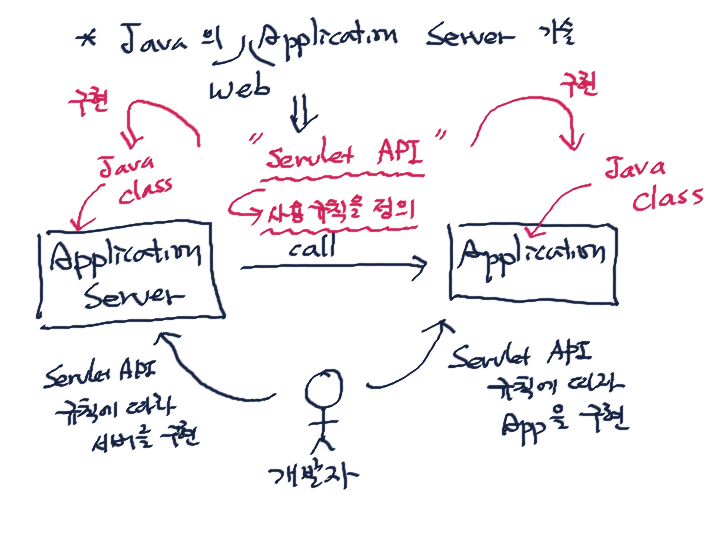 * Java의 Application Server 기술
Web
구현
구현
"Servlet API"
사용 규칙을 정의
Java
class
Java
class
Application
Server
call
Application
Servlet API
규칙에 따라
서버를 구현
개발자
Servlet API
규칙에 따라
App을 구현